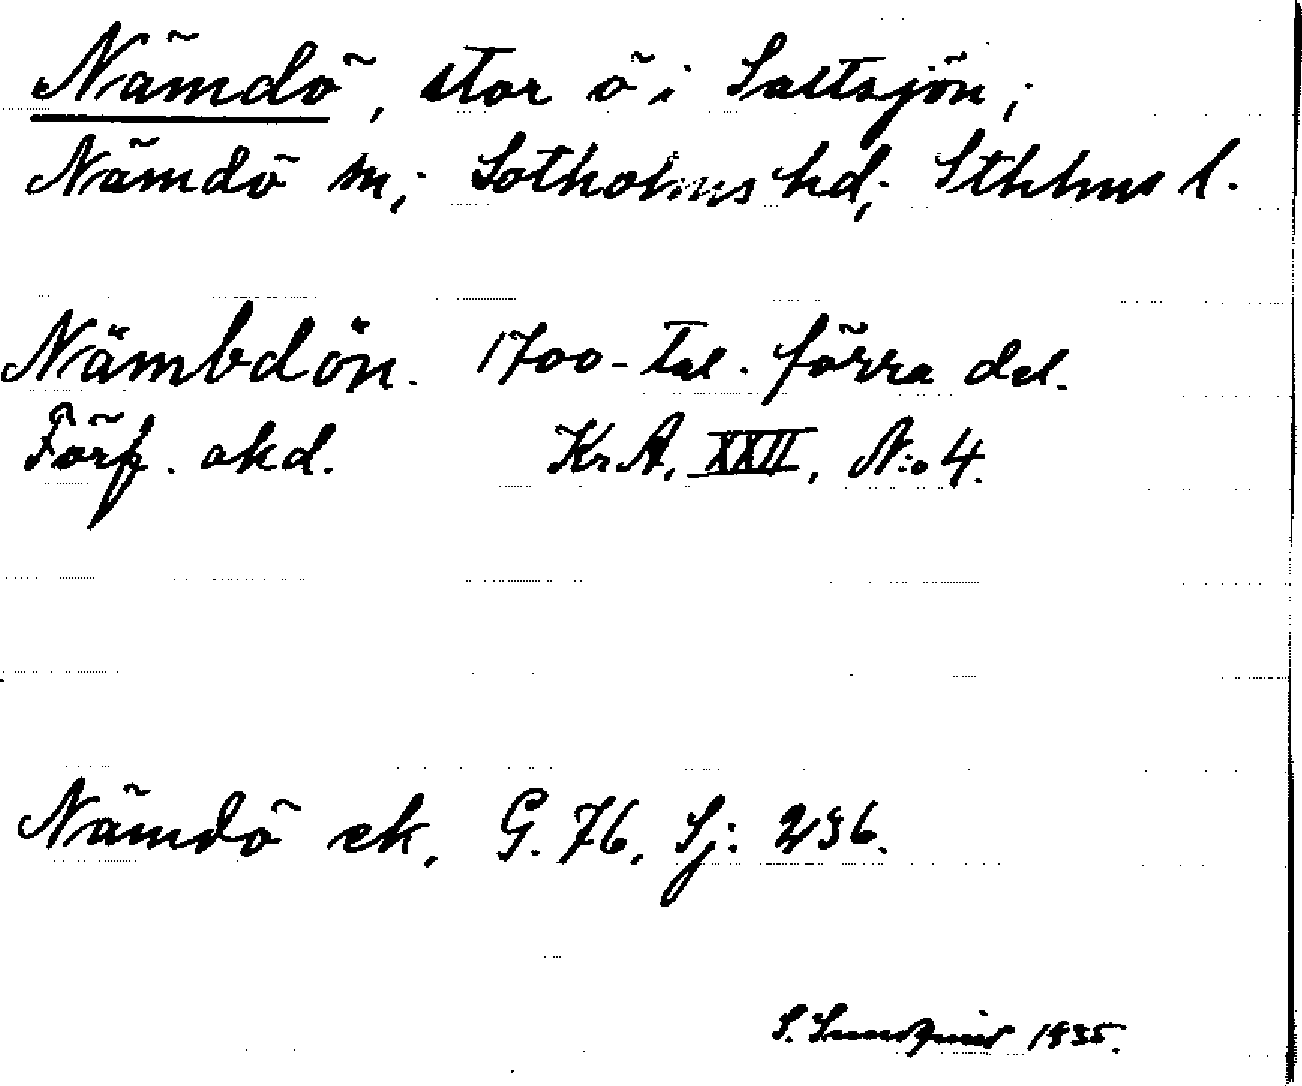 Nämdö, stor ö i Saltsjön;
Nämdö sn; Sotholms hd; Sthlms l.
Nämbdön. 1700-tal. förra del.
Förf. okd. KrA, XXII, N:o 4.
Nämdö ek, G. 76, Sj: 236.
S. Sundquist 1935.